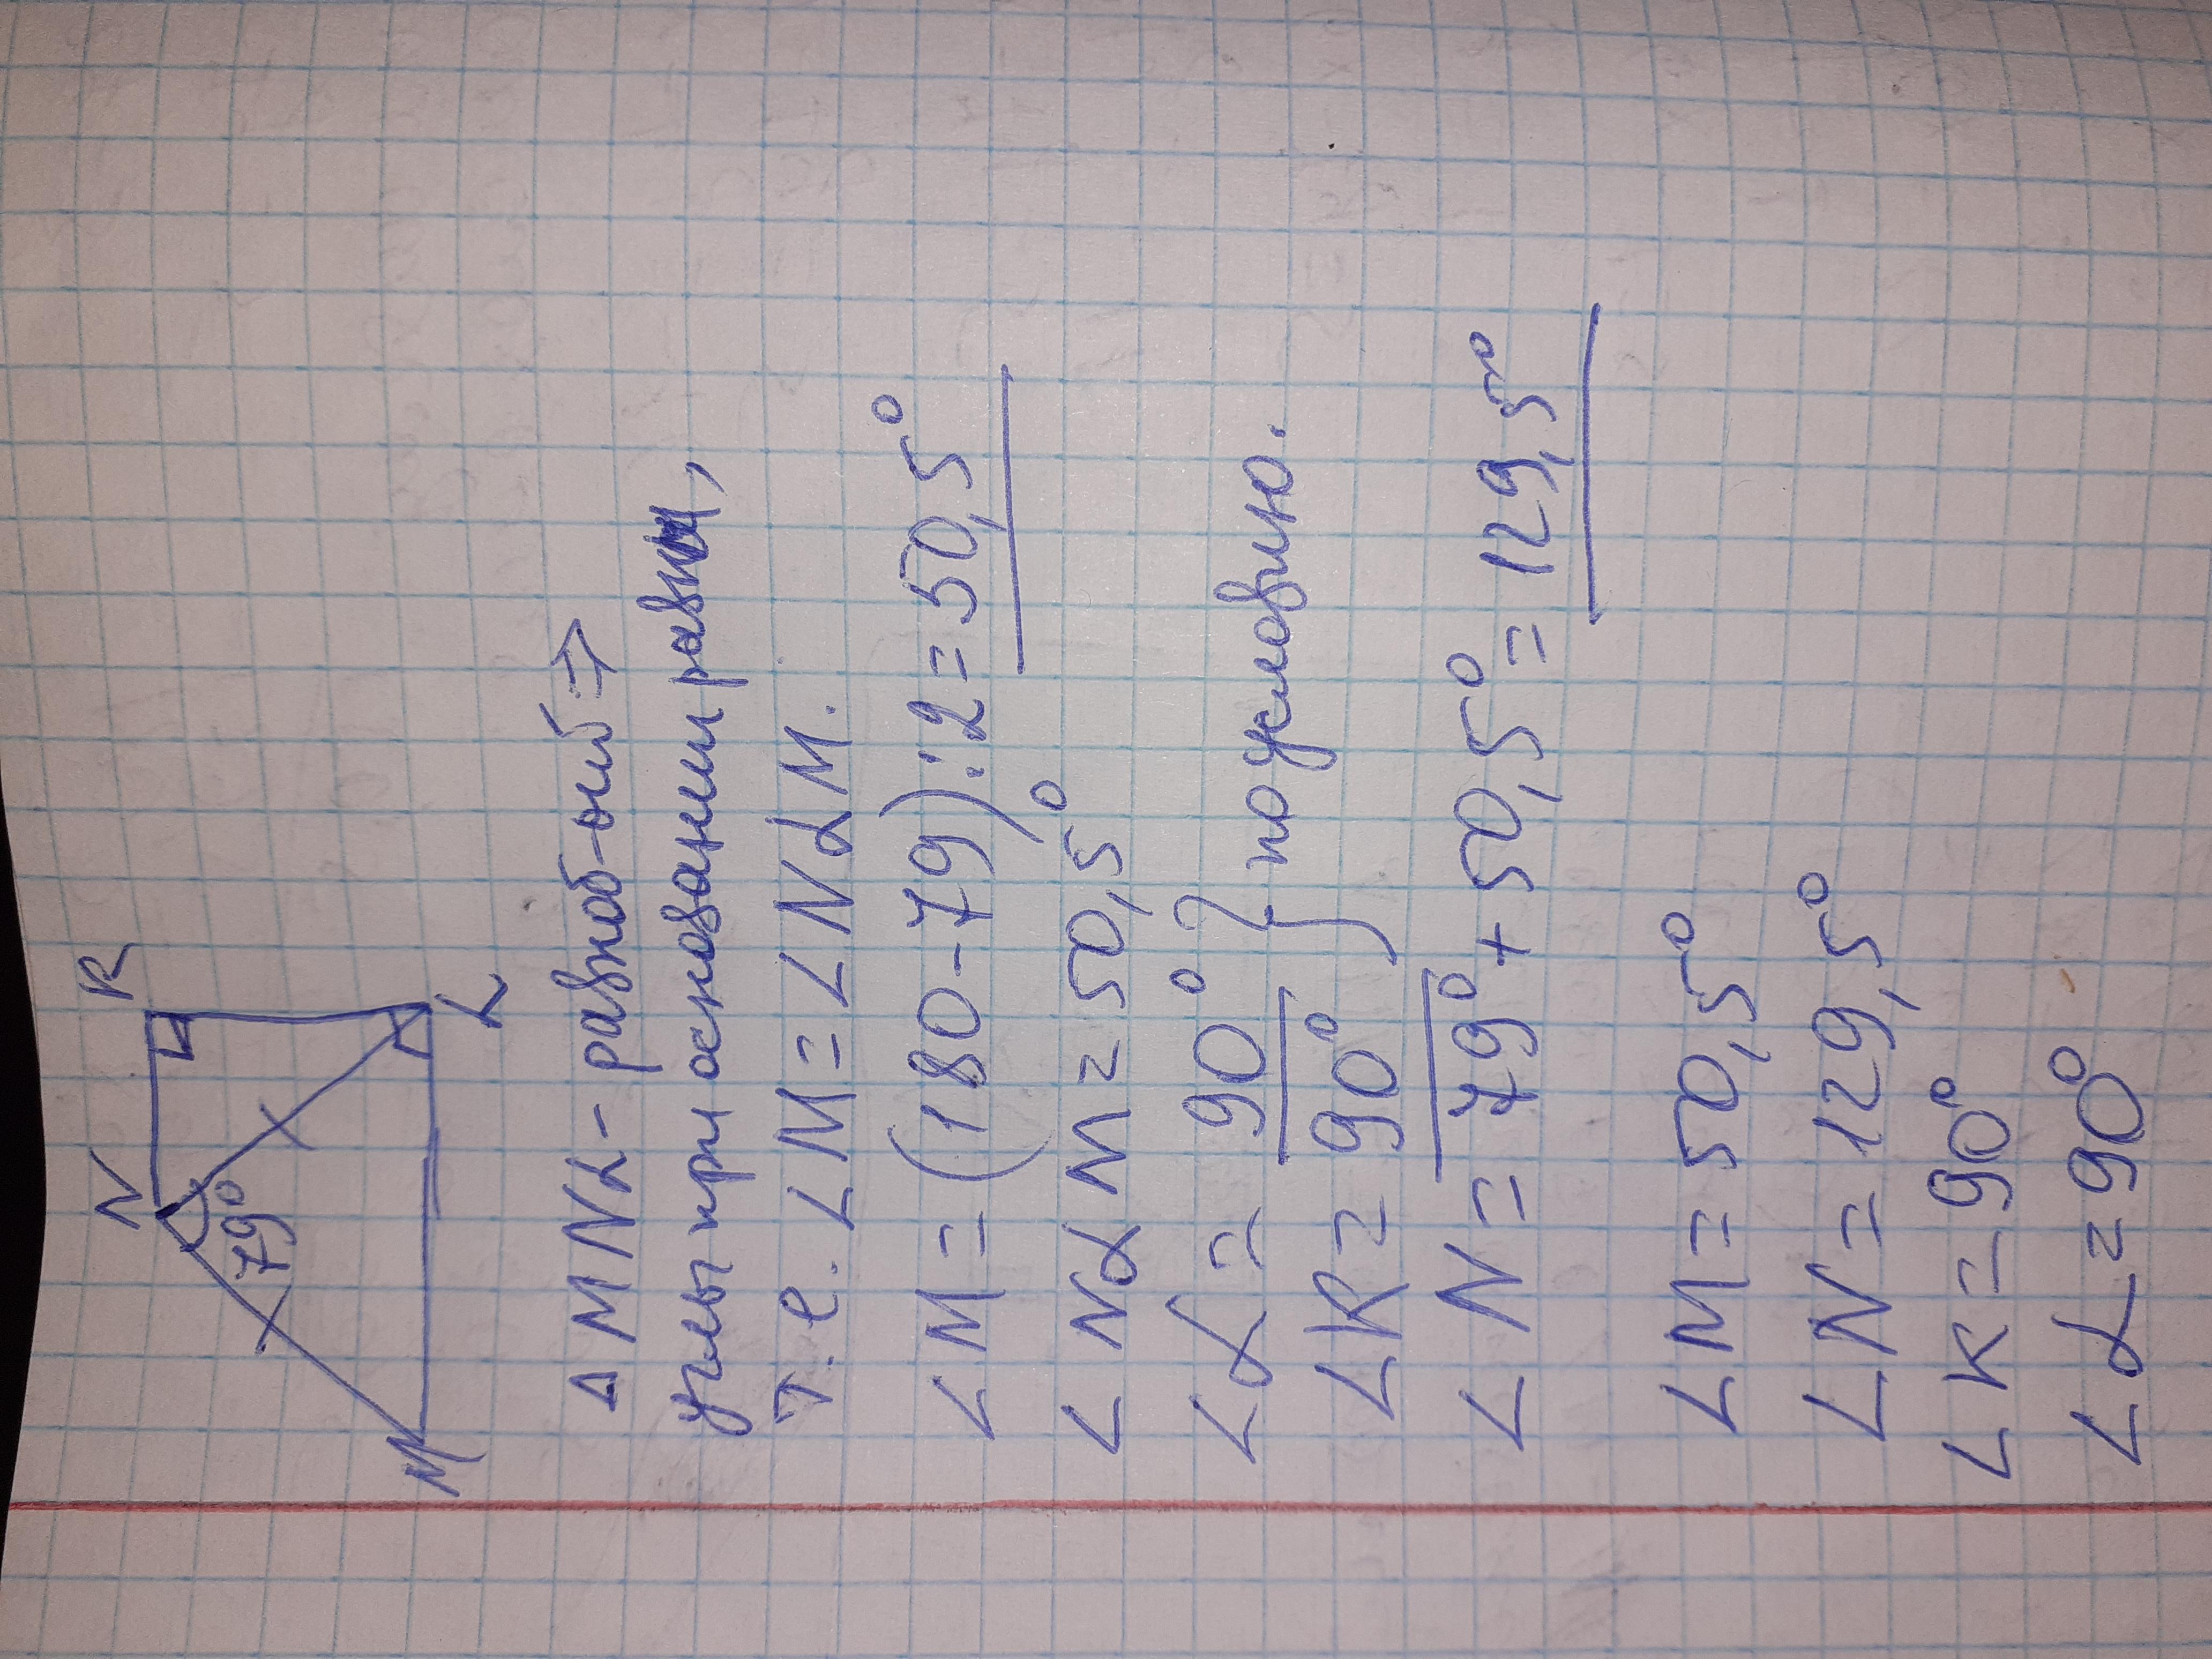 N K
79°
M L
Δ MNL - равноб-ный ⇒
углы при основании равны,
т. е. ∠M = ∠NLM.
∠M = (180 - 79) : 2 = 50,5°
∠NLM = 50,5°
∠L = 90° } по условию.
∠K = 90°
∠N = 79° + 50,5° = 129,5°
∠M = 50,5°
∠N = 129,5°
∠K = 90°
∠L = 90°